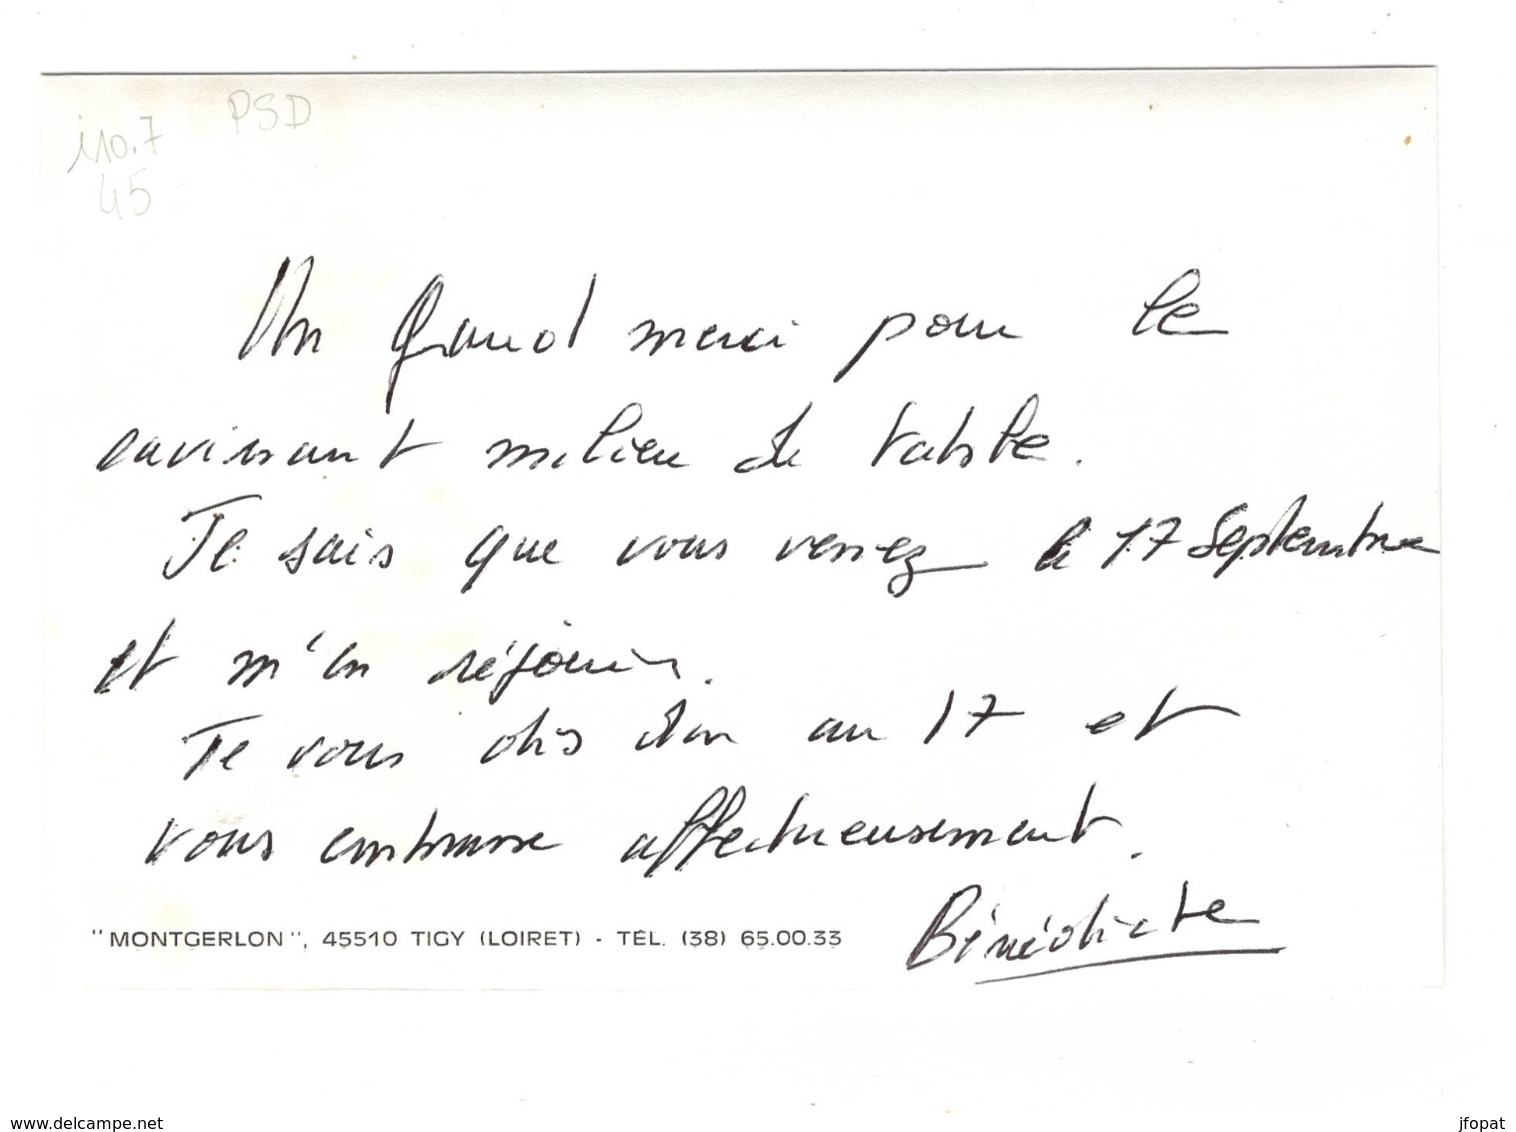 PSD
i10.7
45
Un grand merci pour le
ravissant milieu de table.
Je sais que vous venez le 17 Septembre
et m'en réjouis.
Je vous dis donc au 17 et
vous embrasse affectueusement.
Bénédicte
"MONTGERLON", 45510 TIGY (LOIRET) - TÉL. (38) 65.00.33
www.delcampe.net
jfopat